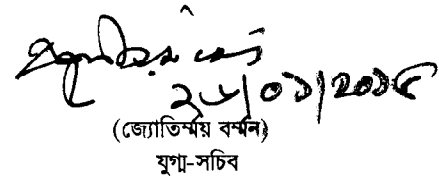 ২৮/০১/২০১৫
(জ্যোতির্ম্ময় বর্ম্মন)
যুগ্ম-সচিব